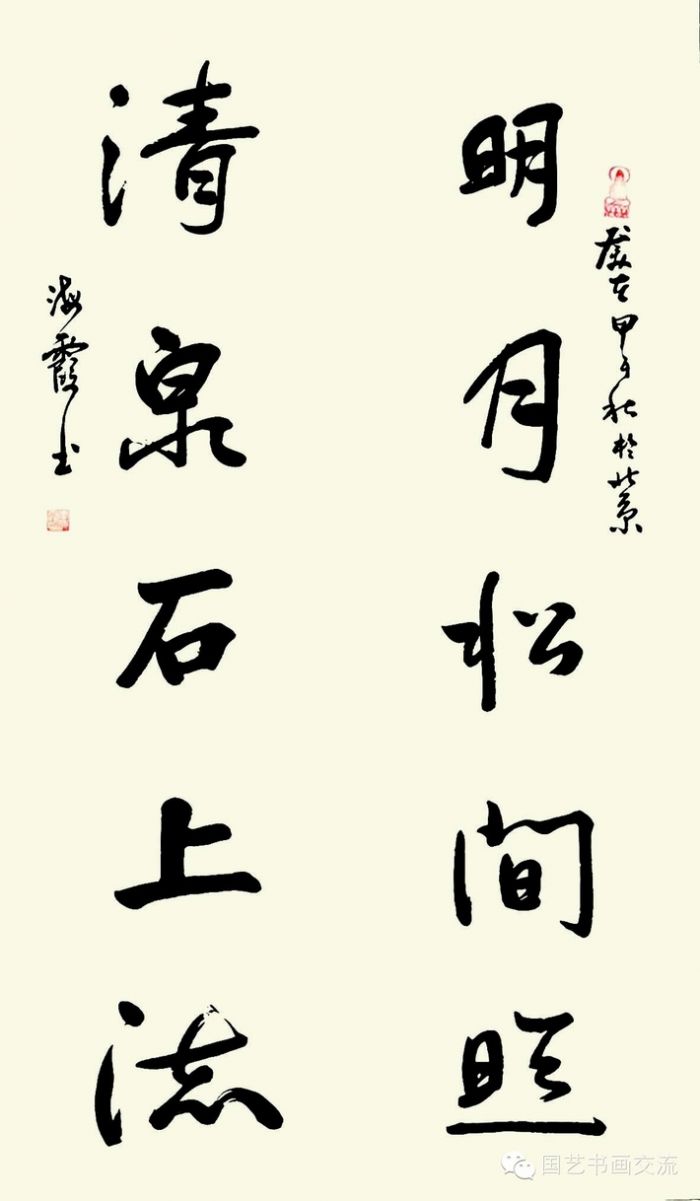 明月松间照
清泉石上流
岁在甲午秋於北京
海霞书
国艺书画交流